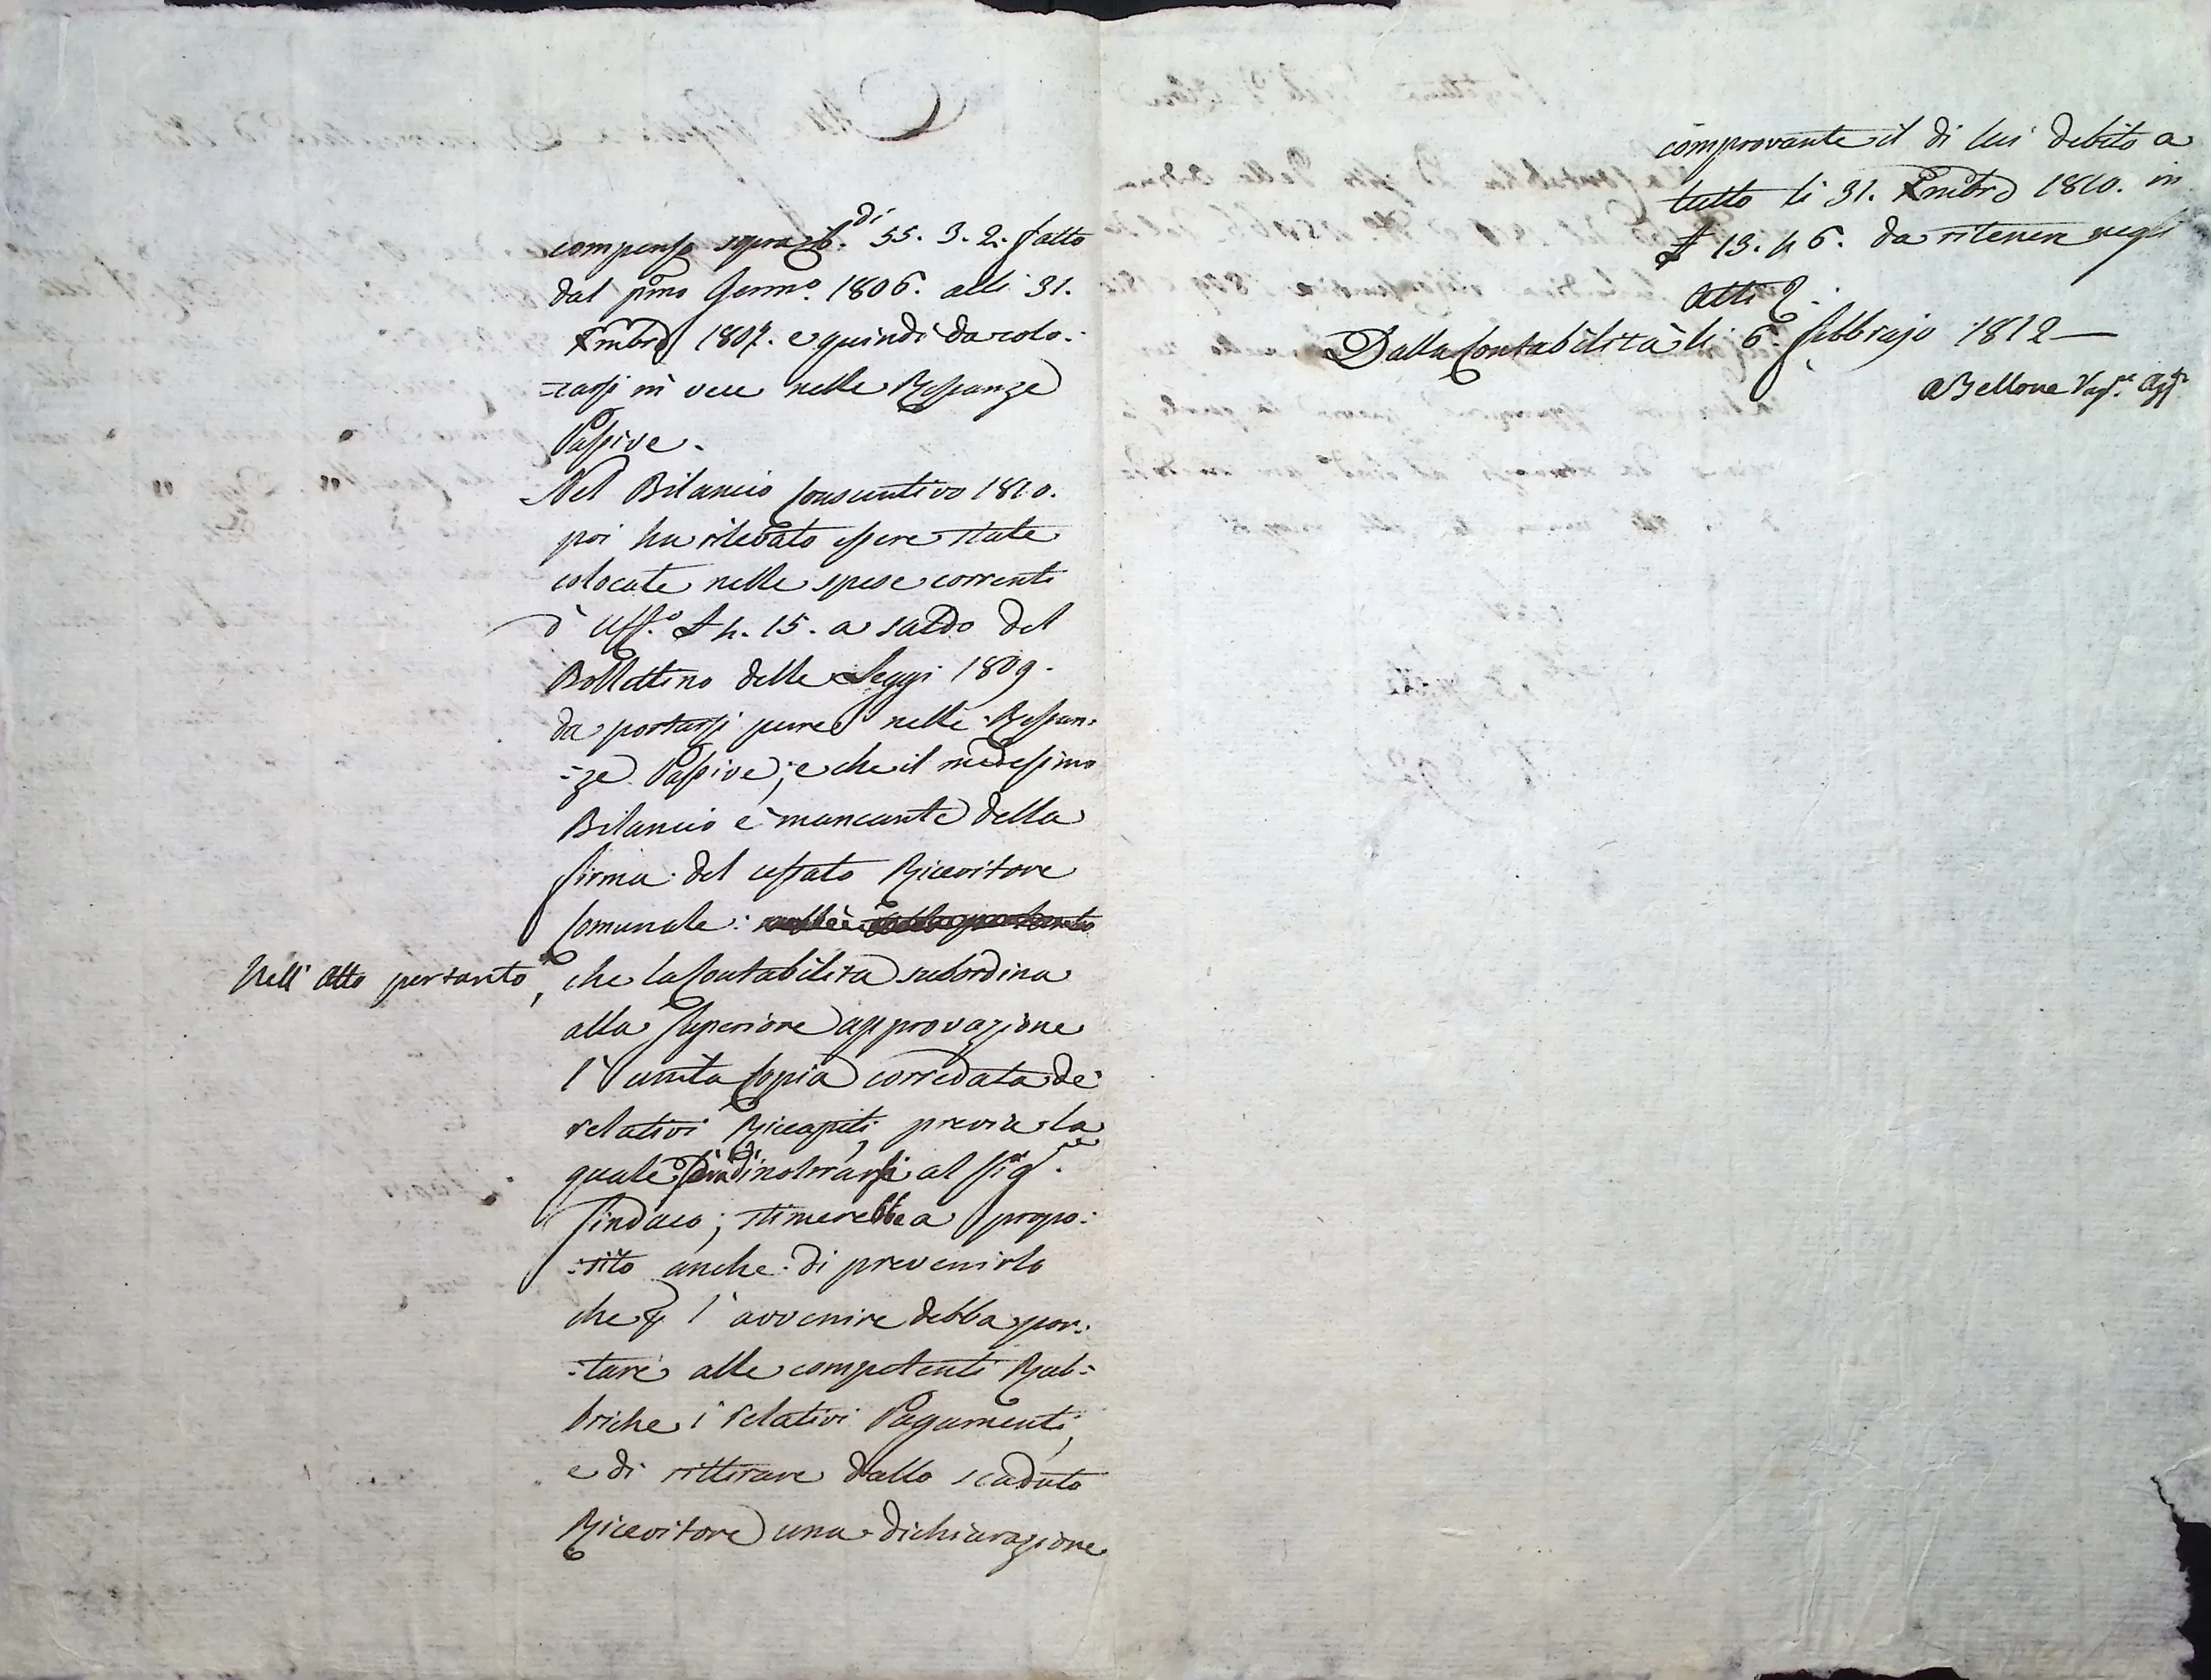 compenso sopra £. di 55. 3. 2. fatto
dal pmo Genn.o 1806. alli 31.
Xmbre 1807. e quindi da colo:
=carsi in vece nelle Restanze
Passive.
Nel Bilancio Consuntivo 1810.
poi ha rilevato essere state
colocate nelle spese correnti
d'Uff.o £ 4. 15. a saldo del
Bollettino delle Leggi 1809.
da portarsi pure nelle Restan:
=ze Passive; e che il medesimo
Bilancio è mancante della
firma del cessato Ricevitore
Comunale:
Nell'Atto pertanto, che la Contabilità subordina
alla Superiore approvazione
l'unita Copia corredata de'
relativi Riccapiti, previa la
quale inoltrarsi al Sig.re
Sindaco; stimerebbe a propo:
=sito anche di prevenirlo
che p l'avvenire debba por:
=tare alle competenti Rub=
briche i relativi Pagamenti,
e di rittirare dallo scaduto
Ricevitore una dichiarazione
comprovante il di lui debito a
tutto li 31. Xmbre 1810. in
£ 13. 4 6. da ritenere negli
Atti
Dalla Contabilità li 6. febbrajo 1812 —
A Bellone Rag.re Agg.to